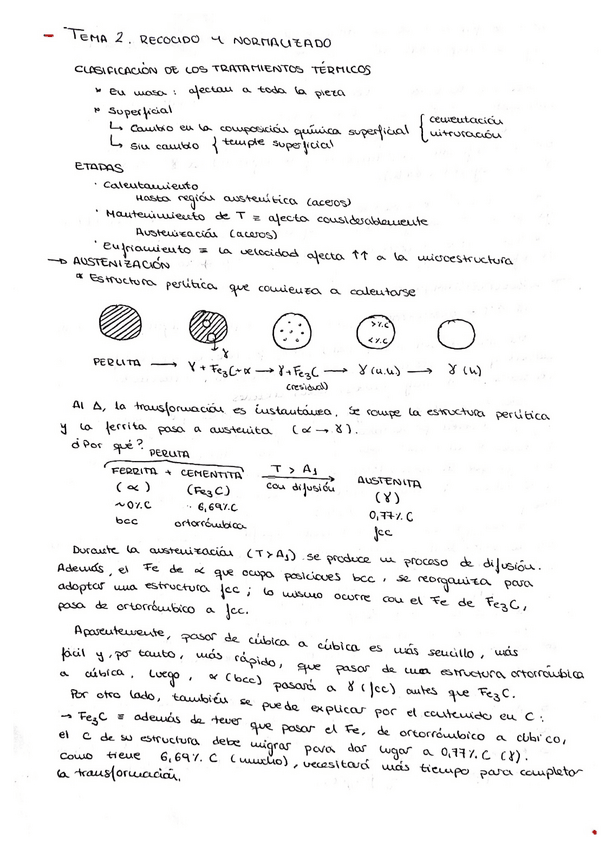 - TEMA 2. RECOCIDO Y NORMALIZADO
CLASIFICACIÓN DE LOS TRATAMIENTOS TÉRMICOS
* En masa: afectan a toda la pieza
* Superficial
↳ Cambio en la composición química superficial { cementación
nitruración
↳ Sin cambio { temple superficial
ETAPAS
· Calentamiento
Hasta región austenítica (aceros)
· Mantenimiento de T ≡ afecta considerablemente
Austenización (aceros)
· Enfriamiento ≡ la velocidad afecta ↑↑ a la microestructura
→ AUSTENIZACIÓN
* Estructura perlítica que comienza a calentarse
>%C
<%C
γ
PERLITA → γ + Fe3C + α → γ + Fe3C → γ (n.h) → γ (h)
(residual)
Al Δ, la transformación es instantánea. Se rompe la estructura perlítica
y la ferrita pasa a austenita (α → γ).
¿Por qué?
PERLITA
FERRITA + CEMENTITA T > A1 AUSTENITA
(α) (Fe3C) con difusión (γ)
~0%C 6,69%C 0,77%C
bcc ortorrómbica fcc
Durante la austenización (T>A1) se produce un proceso de difusión.
Además, el Fe de α que ocupa posiciones bcc, se reorganiza para
adoptar una estructura fcc; lo mismo ocurre con el Fe de Fe3C,
pasa de ortorrómbico a fcc.
Aparentemente, pasar de cúbica a cúbica es más sencillo, más
fácil y, por tanto, más rápido, que pasar de una estructura ortorrómbica
a cúbica. Luego, α (bcc) pasará a γ (fcc) antes que Fe3C.
Por otro lado, también se puede explicar por el contenido en C:
→ Fe3C ≡ además de tener que pasar el Fe, de ortorrómbico a cúbico,
el C de su estructura debe migrar para dar lugar a 0,77%C (γ).
Como tiene 6,69%C (mucho), necesitará más tiempo para completar
la transformación.